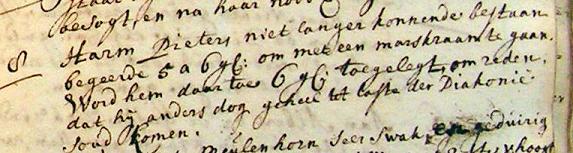 besogt, en na haar
8 Harm Pieters niet langer konnende bestaan
begeerde 5 a 6 gl: om met een marskraam te gaan.
Word hem daar toe 6 gl: toegelegt, om reden,
dat hij anders dog geheel tot laste der Diakonie
soud komen.
Meulenhorn seer Swak, en geduirig